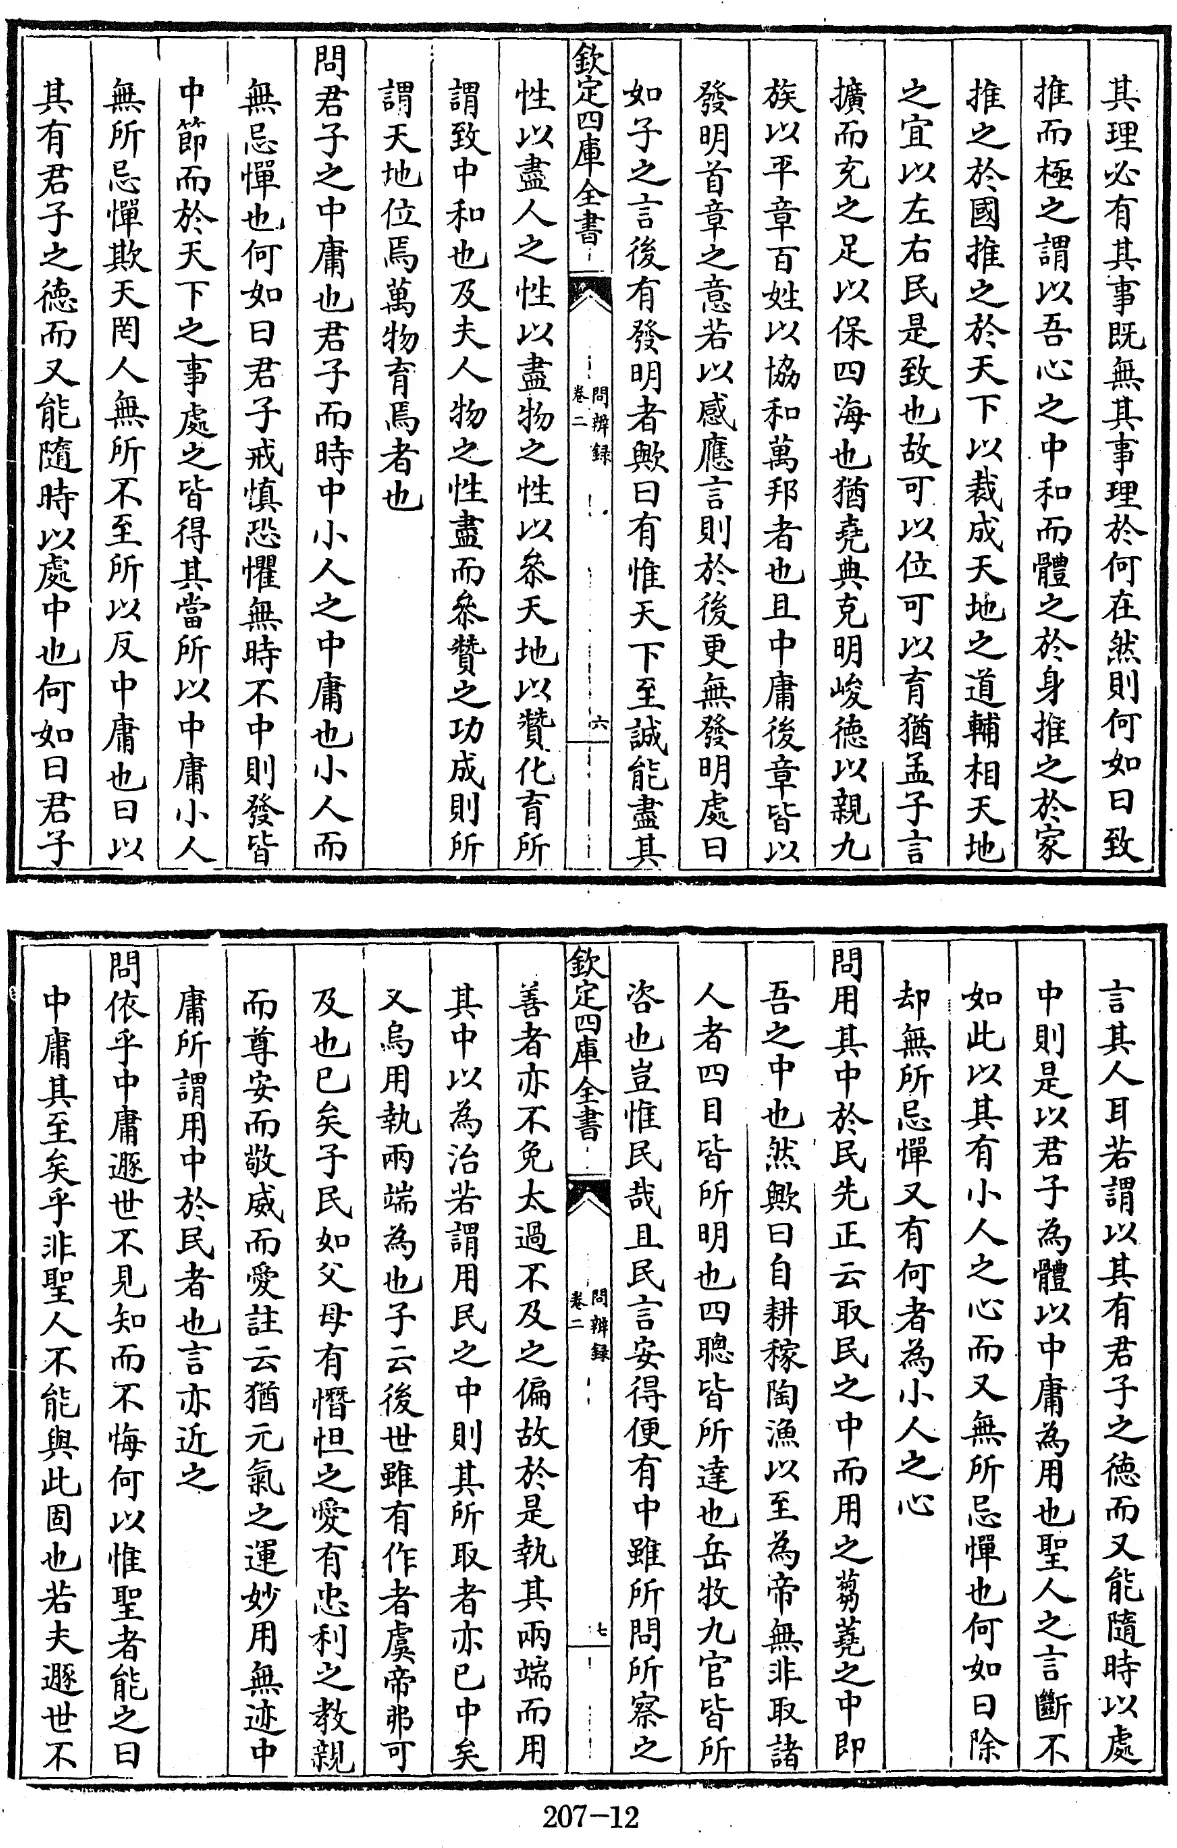 其理必有其事既無其事理於何在然則何如曰致
推而極之謂以吾心之中和而體之於身推之於家
推之於國推之於天下以裁成天地之道輔相天地
之宜以左右民是致也故可以位可以育猶孟子言
擴而充之足以保四海也猶堯典克明峻德以親九
族以平章百姓以協和萬邦者也且中庸後章皆以
發明首章之意若以感應言則於後更無發明處曰
如子之言後有發明者歟曰有惟天下至誠能盡其
欽定四庫全書
問辨録
卷二
六
性以盡人之性以盡物之性以叅天地以贊化育所
謂致中和也及夫人物之性盡而叅贊之功成則所
謂天地位焉萬物育焉者也
問君子之中庸也君子而時中小人之中庸也小人而
無忌憚也何如曰君子戒慎恐懼無時不中則發皆
中節而於天下之事處之皆得其當所以中庸小人
無所忌憚欺天罔人無所不至所以反中庸也曰以
其有君子之德而又能隨時以處中也何如曰君子
言其人耳若謂以其有君子之德而又能隨時以處
中則是以君子為體以中庸為用也聖人之言斷不
如此以其有小人之心而又無所忌憚也何如曰除
却無所忌憚又有何者為小人之心
問用其中於民先正云取民之中而用之芻蕘之中即
吾之中也然歟曰自耕稼陶漁以至為帝無非取諸
人者四目皆所明也四聰皆所達也岳牧九官皆所
咨也豈惟民哉且民言安得便有中雖所問所察之
欽定四庫全書
問辨録
卷二
七
善者亦不免太過不及之偏故於是執其兩端而用
其中以為治若謂用民之中則其所取者亦已中矣
又烏用執兩端為也子云後世雖有作者虞帝弗可
及也已矣子民如父母有憯怛之愛有忠利之教親
而尊安而敬威而愛註云猶元氣之運妙用無迹中
庸所謂用中於民者也言亦近之
問依乎中庸遯世不見知而不悔何以惟聖者能之曰
中庸其至矣乎非聖人不能與此固也若夫遯世不
207-12